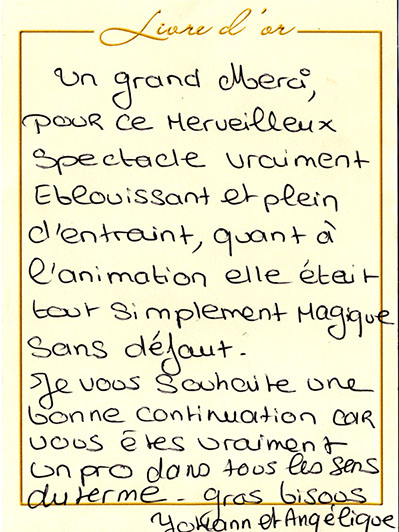 Livre d'or
Un grand Merci,
pour ce Merveilleux
Spectacle vraiment
Eblouissant et plein
d'entraint, quant à
l'animation elle était
tout Simplement Magique
Sans défaut.
Je vous Souhaite une
bonne continuation car
vous êtes vraiment
un pro dans tous les sens
du terme - gros bisous
Yohann et Angélique